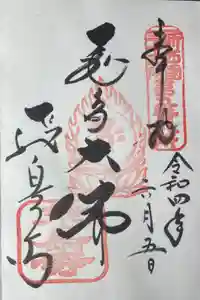 奉拝
令和四年
六月五日
飛鳥大佛
飛鳥寺